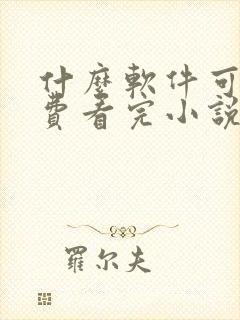 什麼軟件可
費看完小說
羅尔夫